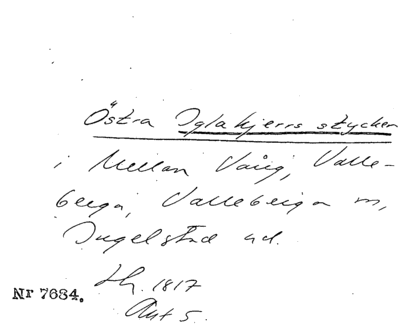 Östra Iglakjerrs stycken
i Mellan Vång, Valle-
berga, Valleberga sn,
Ingelstad hd.
Lh. 1817
Akt 5.
Nr 7684.